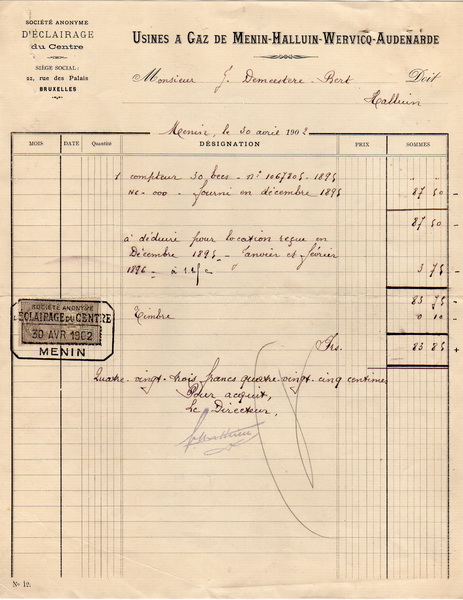 SOCIÉTÉ ANONYME
D'ÉCLAIRAGE
du Centre
SIÈGE SOCIAL:
22, rue des Palais
BRUXELLES
USINES A GAZ DE MENIN-HALLUIN-WERVICQ-AUDENARDE
Monsieur J. Demeestere-Bert Doit
Halluin
Menin, le 30 avril 1902
MOIS DATE Quantité DÉSIGNATION PRIX SOMMES
1 compteur 30 becs - n° 1067805 - 1895
fourni en décembre 1895 87 50 -
87 50 -
à déduire pour location reçue en
Décembre 1895 - Janvier et février
1896 - à 1.25 3 75 -
83 75 -
Timbre 0 10 -
Frs. 83 85 +
Quatre-vingt-trois francs quatre-vingt-cinq centimes
Pour acquit,
Le Directeur,
SOCIÉTÉ ANONYME
L'ÉCLAIRAGE DU CENTRE
30 AVR 1902
MENIN
No 12.